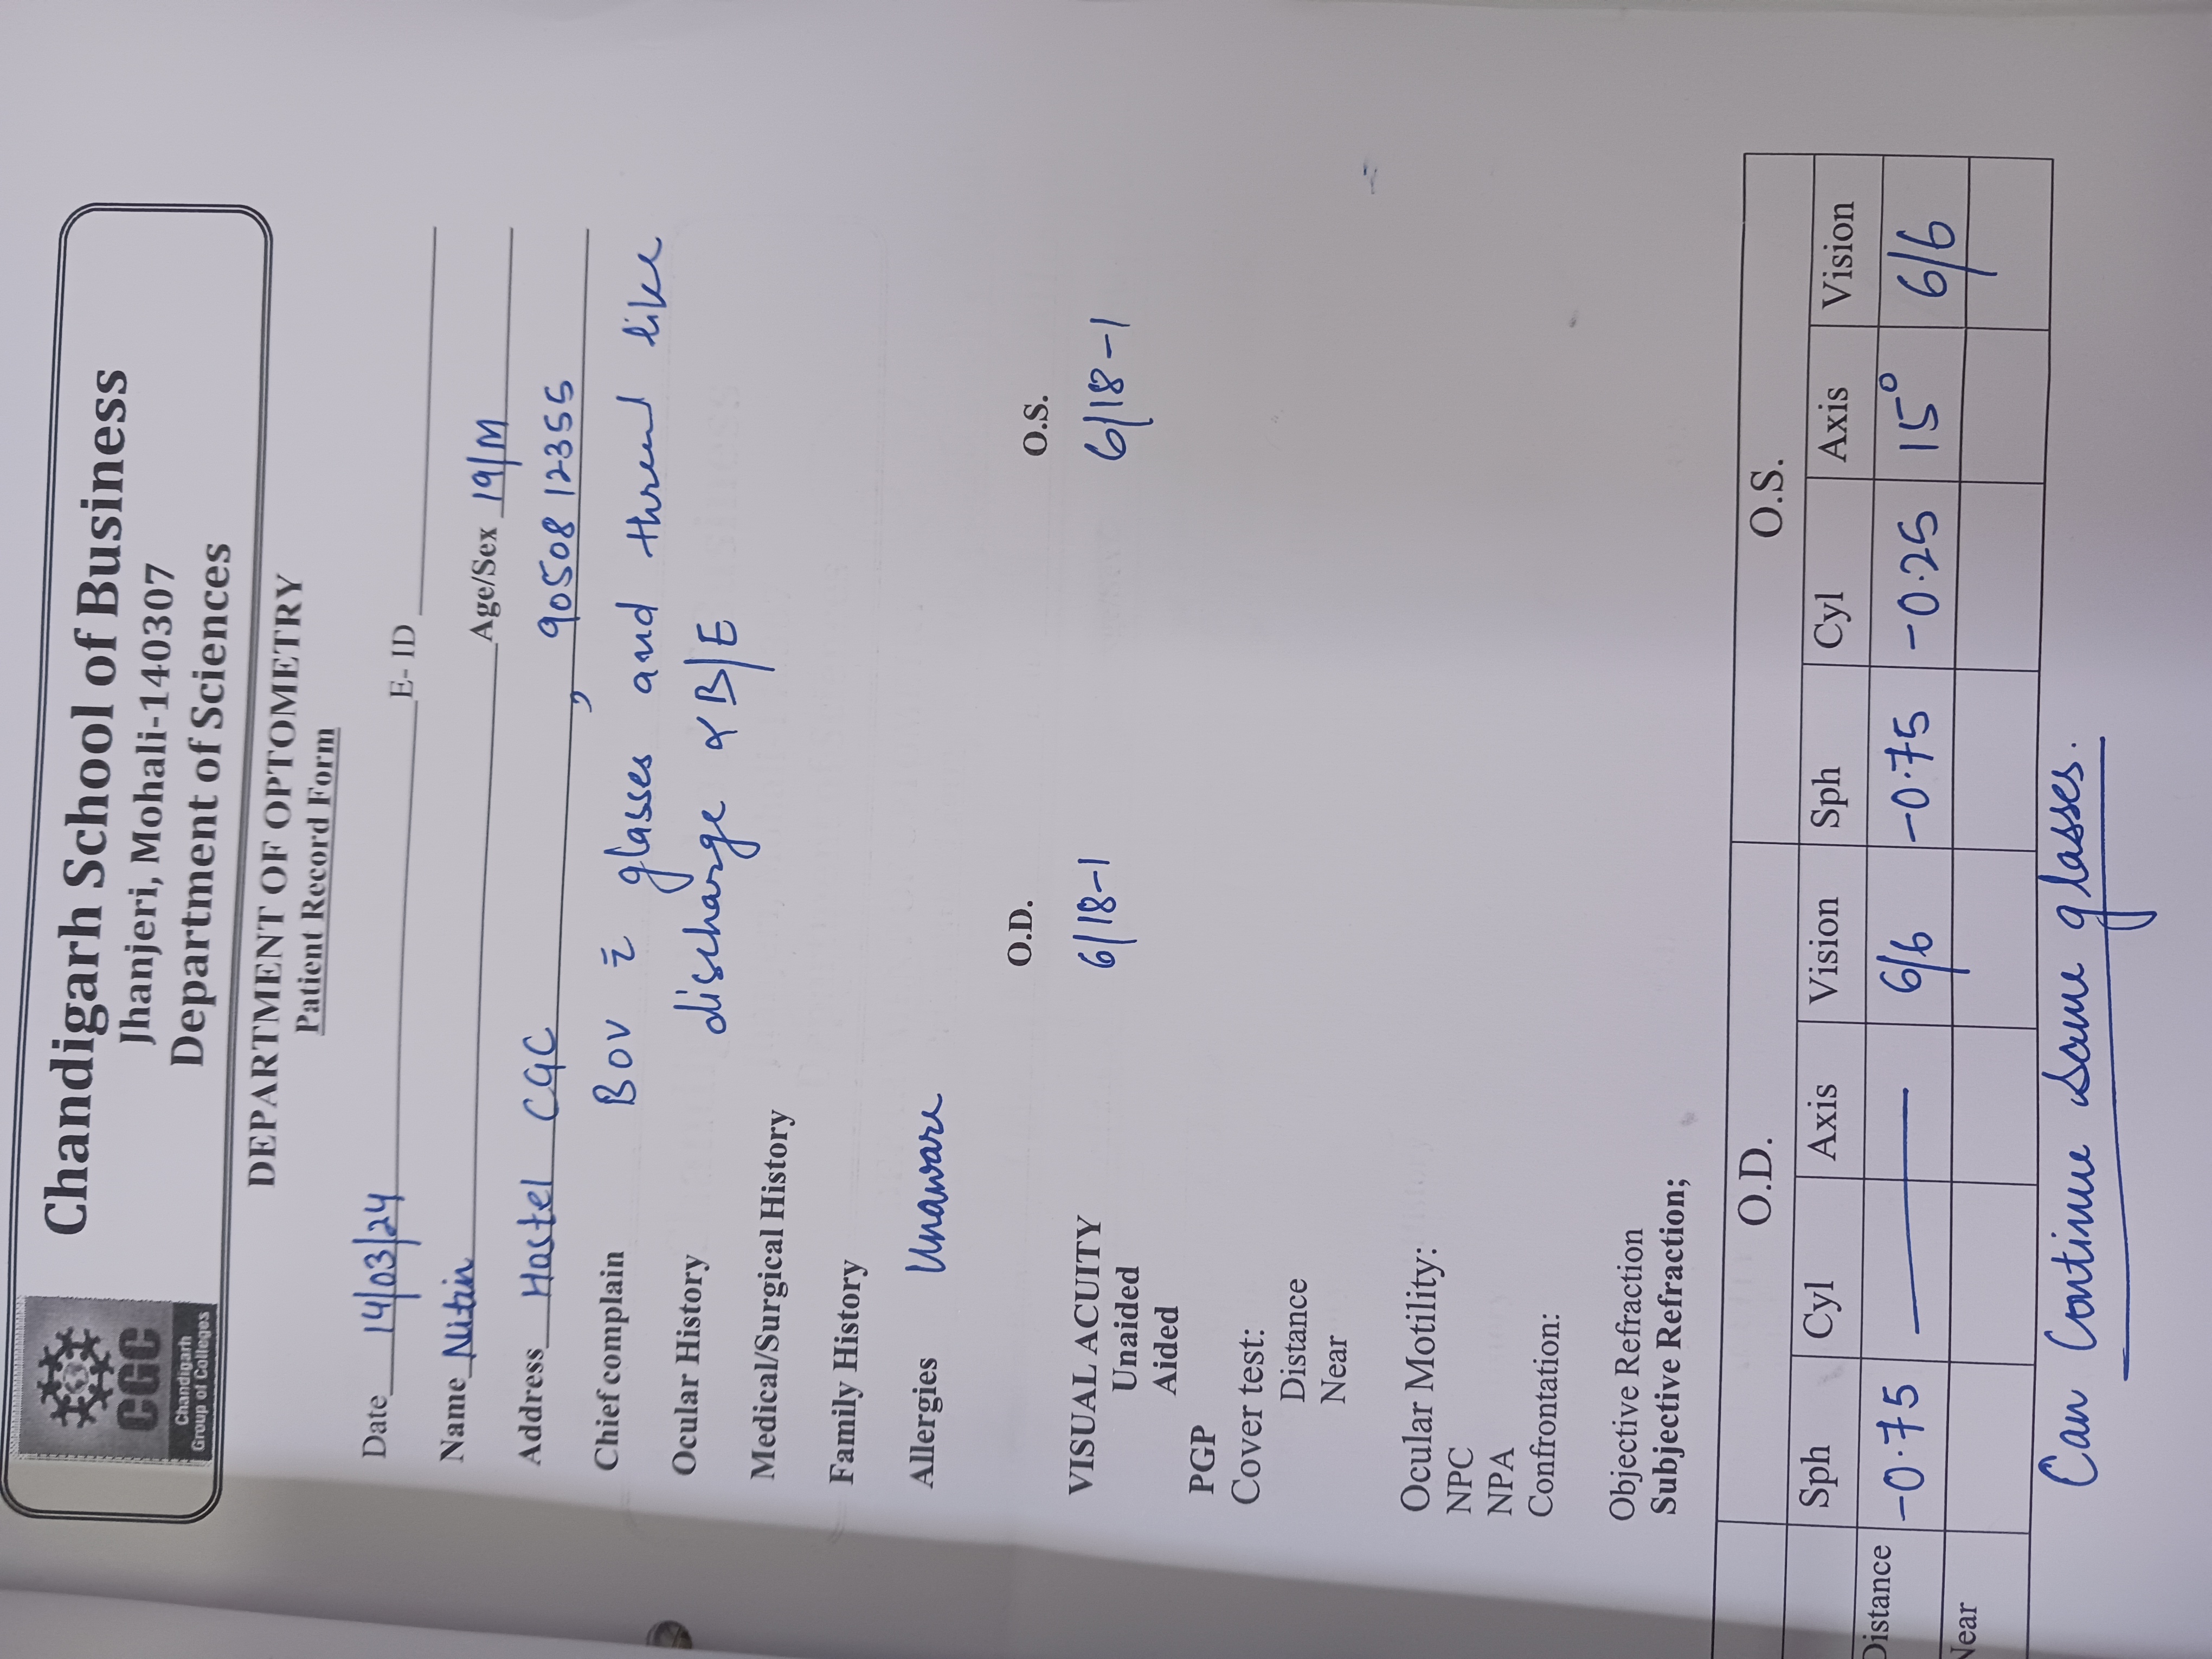 CGC
Chandigarh
Group of Colleges
Chandigarh School of Business
Jhanjeri, Mohali-140307
Department of Sciences
DEPARTMENT OF OPTOMETRY
Patient Record Form
Date 14/03/24 E- ID
Name Nitin Age/Sex 19/M
Address Hostel CGC , 90508 12355
Chief complain BOV c̄ glasses and thread like
Ocular History discharge B/E
Medical/Surgical History
Family History
Allergies Unaware
O.D. O.S.
VISUAL ACUITY 6/18-1 6/18-1
Unaided
Aided
PGP
Cover test:
Distance
Near
Ocular Motility:
NPC
NPA
Confrontation:
Objective Refraction
Subjective Refraction;
O.D. O.S.
Sph Cyl Axis Vision Sph Cyl Axis Vision
Distance -0.75 — 6/6 -0.75 -0.25 15° 6/6
Near
Can Continue same glasses.